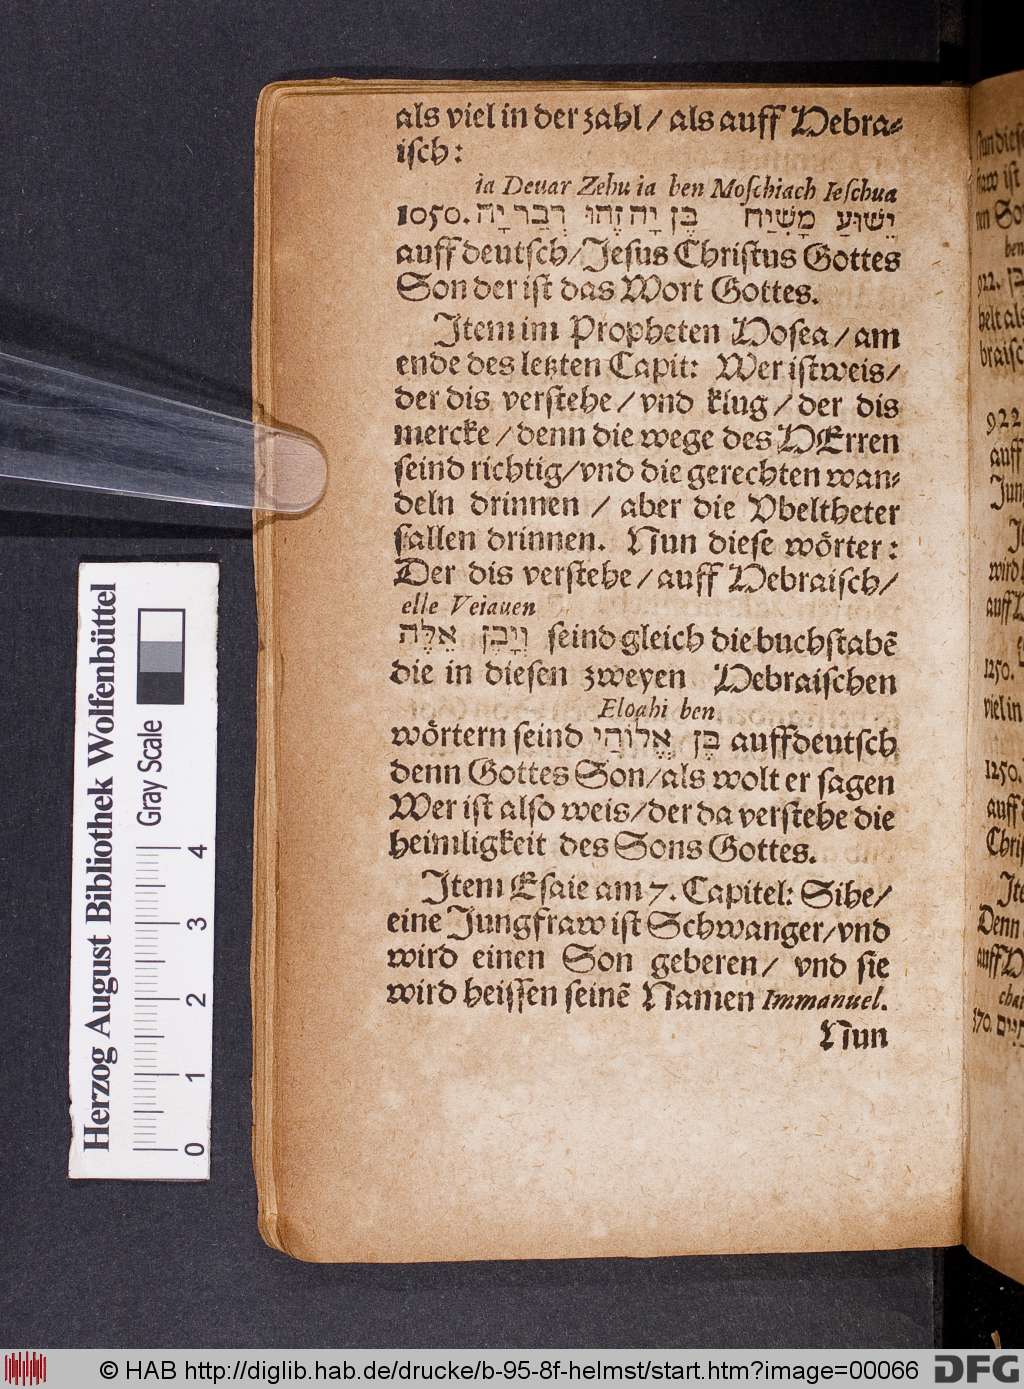 als viel in der zahl / als auff Hebra⸗
isch :
ia Deuar Zehu ia ben Moschiach Ieschua
1050. יֵשׁוּעַ מָשִׁיַח בֶּן יָה זֶהוּ דְבַר יָה
auff deutsch / Jesus Christus Gottes
Son der ist das Wort Gottes.
Item im Propheten Hosea / am
ende des letzten Capit: Wer ist weis /
der dis verstehe / vnd klug / der dis
mercke / denn die wege des HErren
seind richtig / vnd die gerechten wan⸗
deln drinnen / aber die Vbeltheter
fallen drinnen. Nun diese wörter :
Der dis verstehe / auff Hebraisch /
elle Veiauen
וְיָבֵן אֵלֶּה seind gleich die buchstabẽ
die in diesen zweyen Hebraischen
Eloahi ben
wörtern seind בֶּן אֱלוֹהַי auff deutsch
denn Gottes Son / als wolt er sagen
Wer ist also weis / der da verstehe die
heimligkeit des Sons Gottes.
Item Esaie am 7. Capitel: Sihe /
eine Jungfraw ist Schwanger / vnd
wird einen Son geberen / vnd sie
wird heissen seinẽ Namen Immanuel.
Nun
Herzog August Bibliothek Wolfenbüttel
Gray Scale
0 1 2 3 4
© HAB http://diglib.hab.de/drucke/b-95-8f-helmst/start.htm?image=00066
DFG